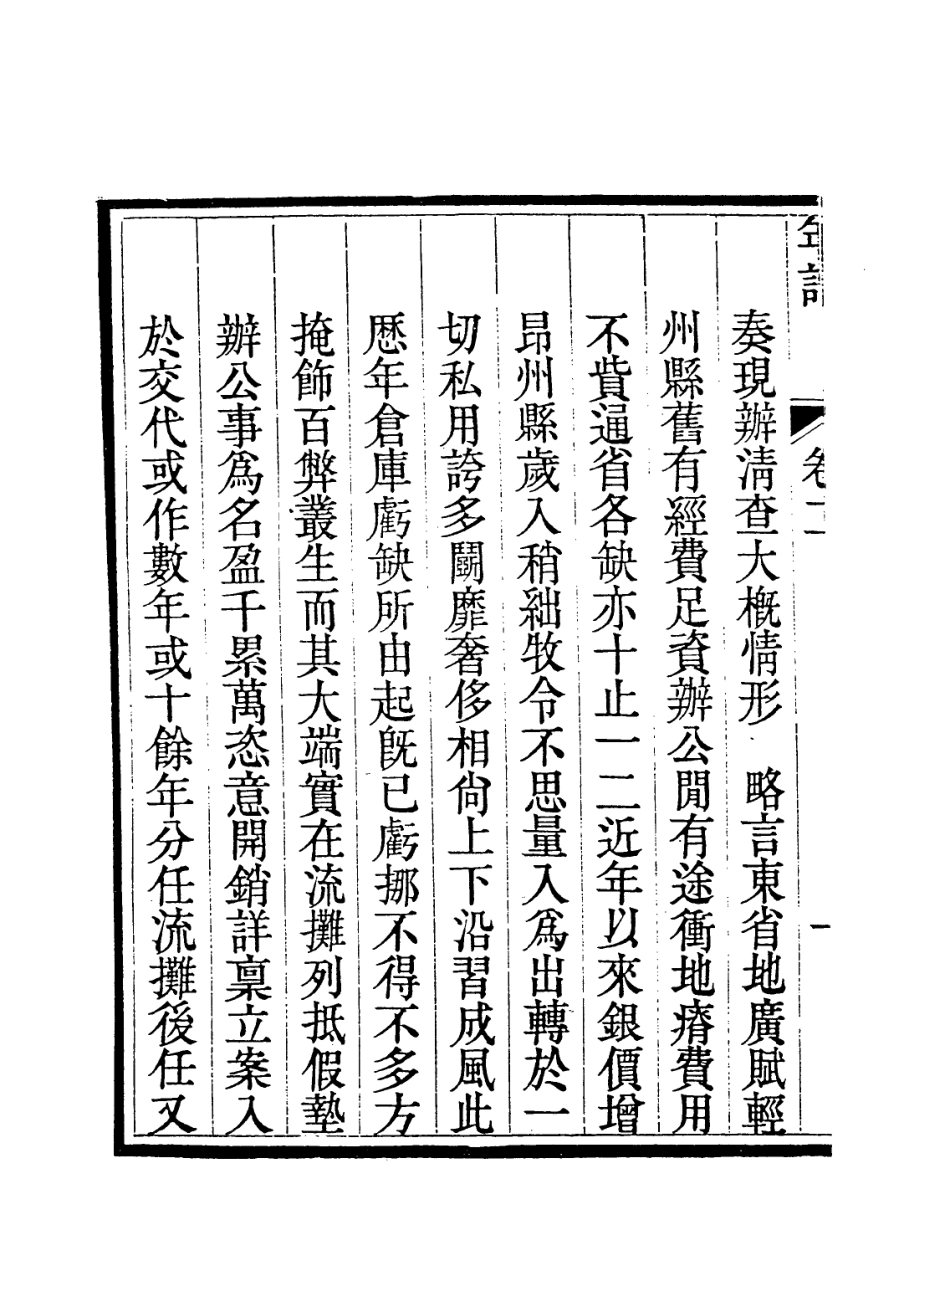 奏現辦淸查大槪情形　略言東省地廣賦輕
州縣舊有經費足資辦公閒有途衝地瘠費用
不貲通省各缺亦十止一二近年以來銀價增
昂州縣歲入稍絀牧令不思量入爲出轉於一
切私用誇多鬭靡奢侈相尙上下沿習成風此
歷年倉庫虧缺所由起旣已虧挪不得不多方
掩飾百弊叢生而其大端實在流攤列抵假墊
辦公事爲名盈千累萬恣意開銷詳稟立案入
於交代或作數年或十餘年分任流攤後任又